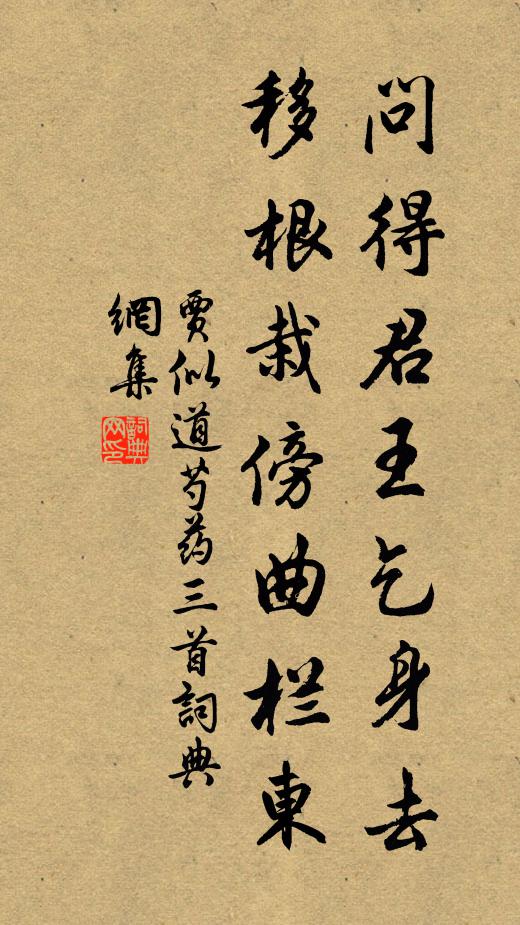 问得君王乞身去
移根栽傍曲栏東
賈似道芍药三首詞典
網集
詞典网印